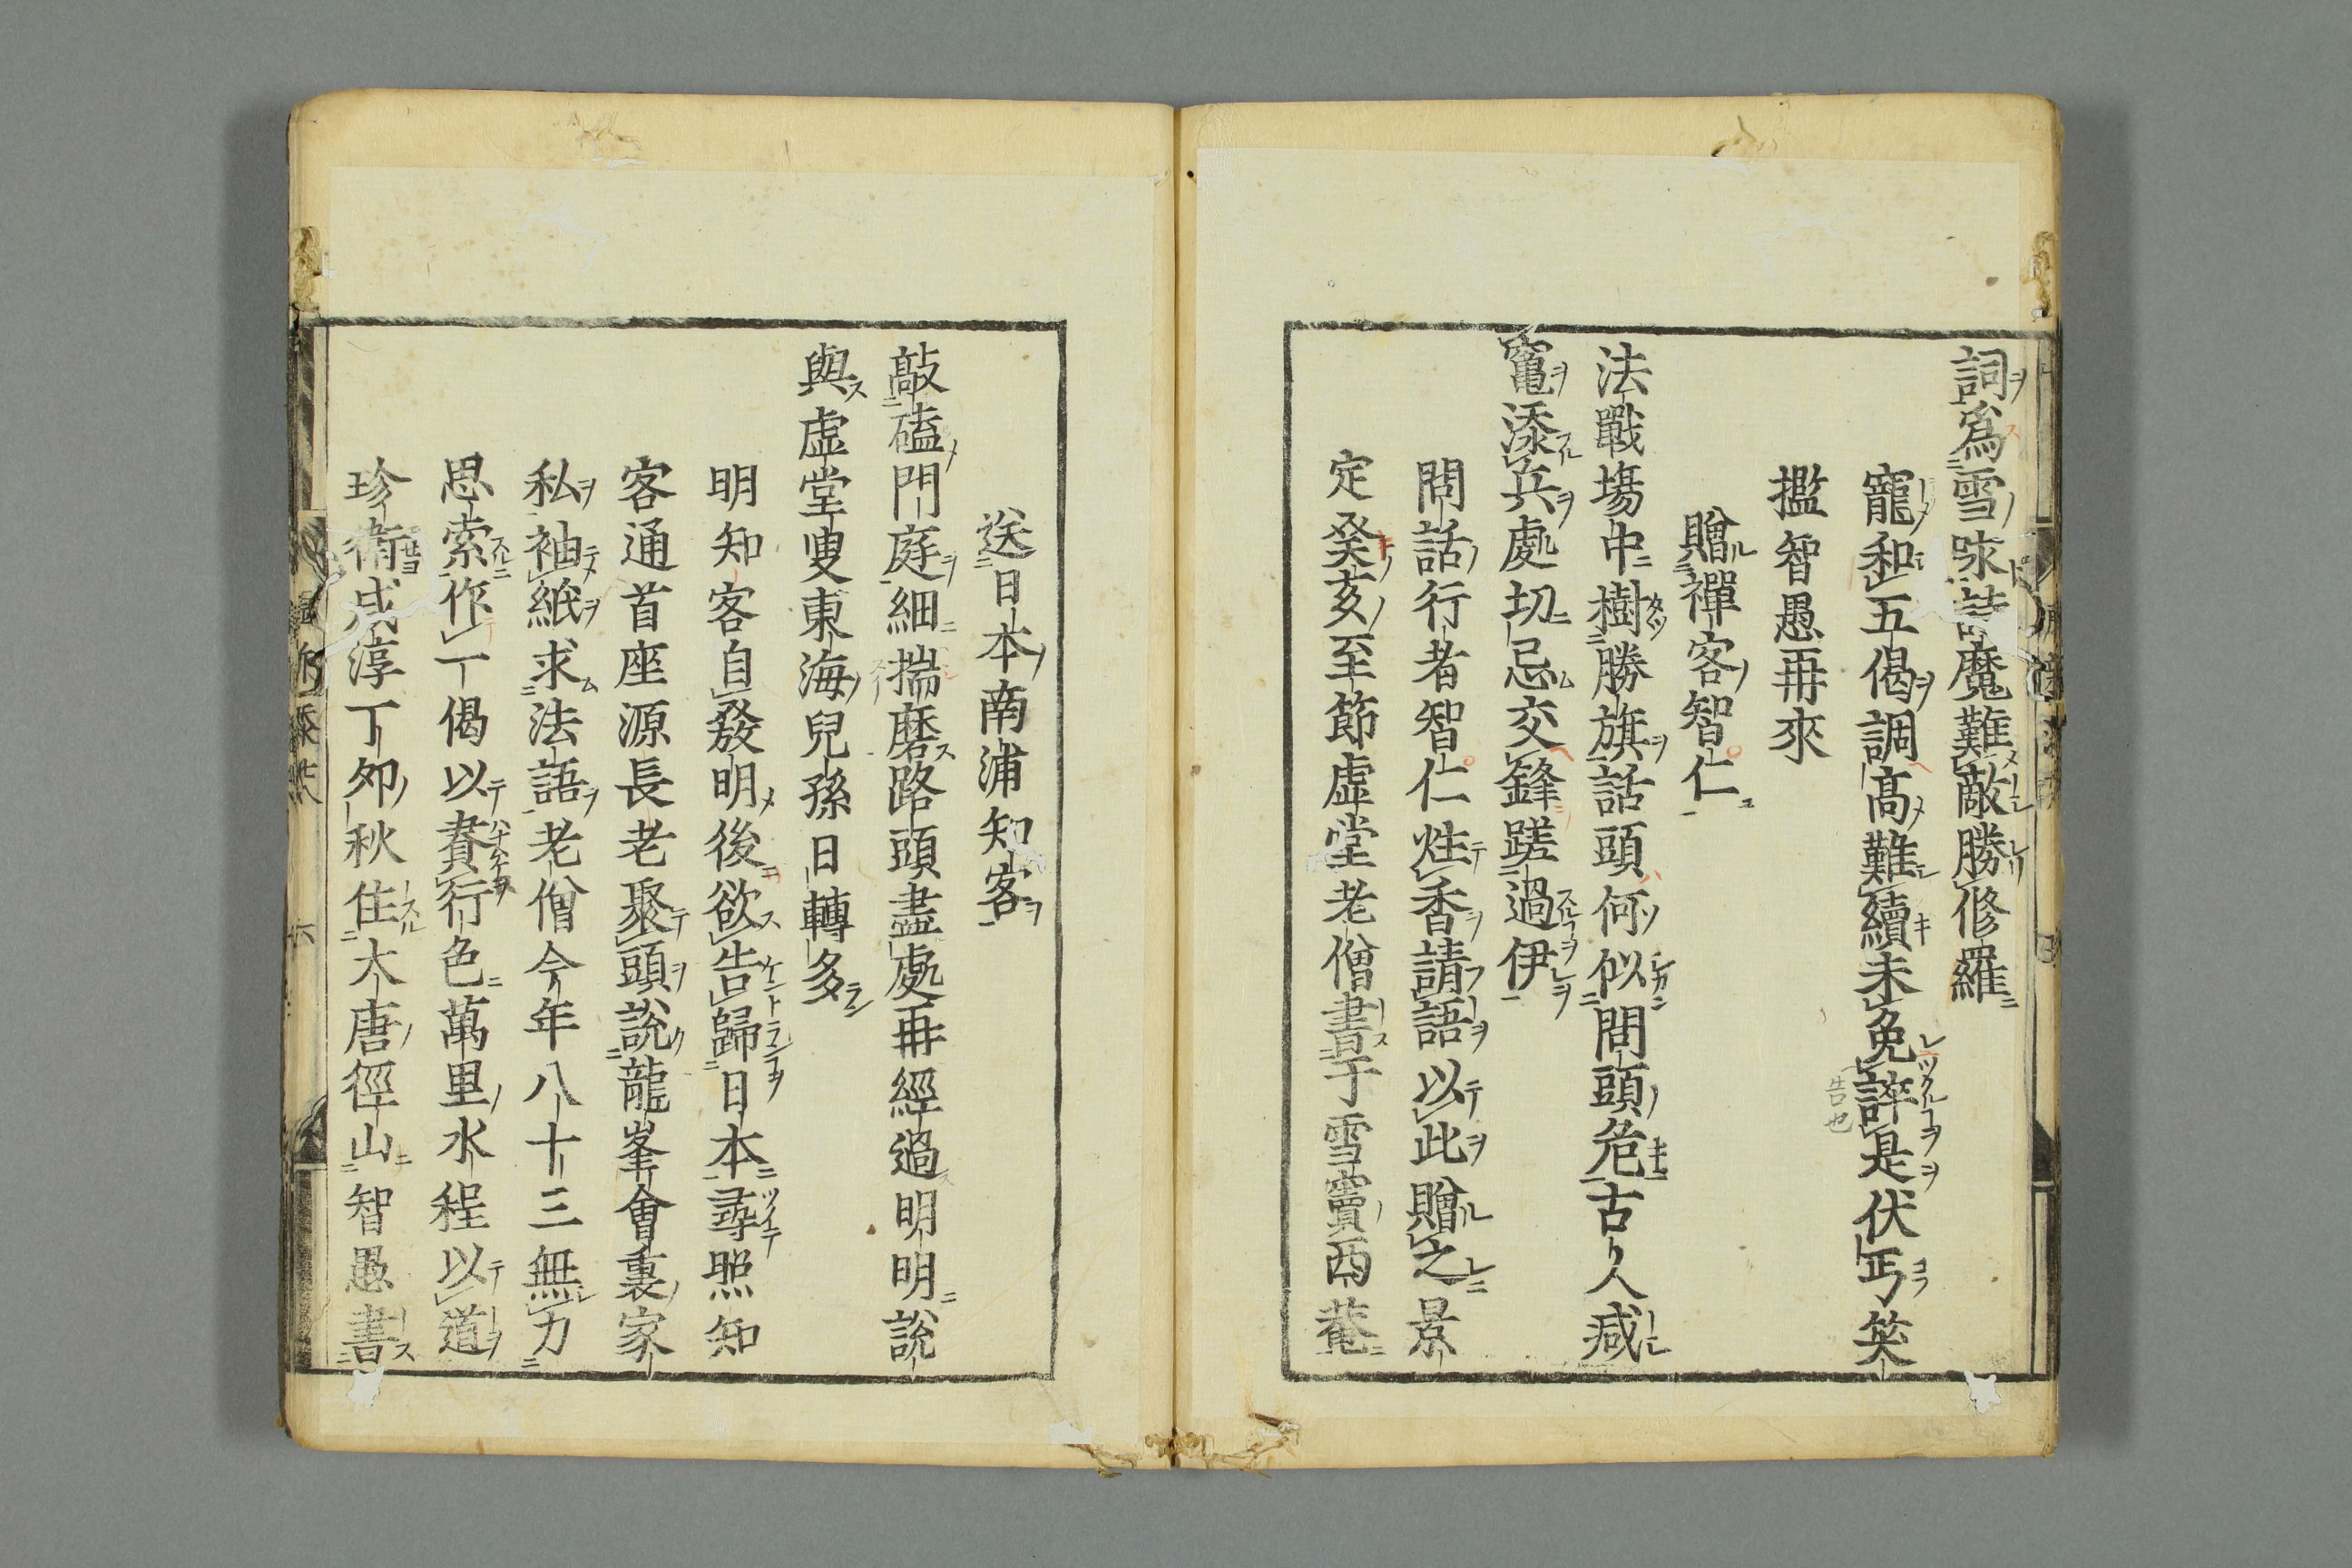 詞爲雪咏詩魔難敵勝修羅
寵和五偈調高難續未免誶是伏丐笑
攬智愚再來
贈禪客智仁
法戰場中樹勝旗話頭何似問頭危古人減
竈添兵處切忌交鋒蹉過伊
問話行者智仁炷香請語以此贈之景
定癸亥至節虛堂老僧書于雪竇西菴
送日本南浦知客
敲磕門庭細揣磨路頭盡處再經過明明說
與虛堂叟東海兒孫日轉多
明知客自發明後欲告歸日本尋照知
客通首座源長老聚頭說龍峯會裏家
私袖紙求法語老僧今年八十三無力
思索作一偈以賚行色萬里水程以道
珍衛咸淳丁卯秋住大唐徑山智愚書
六
告也